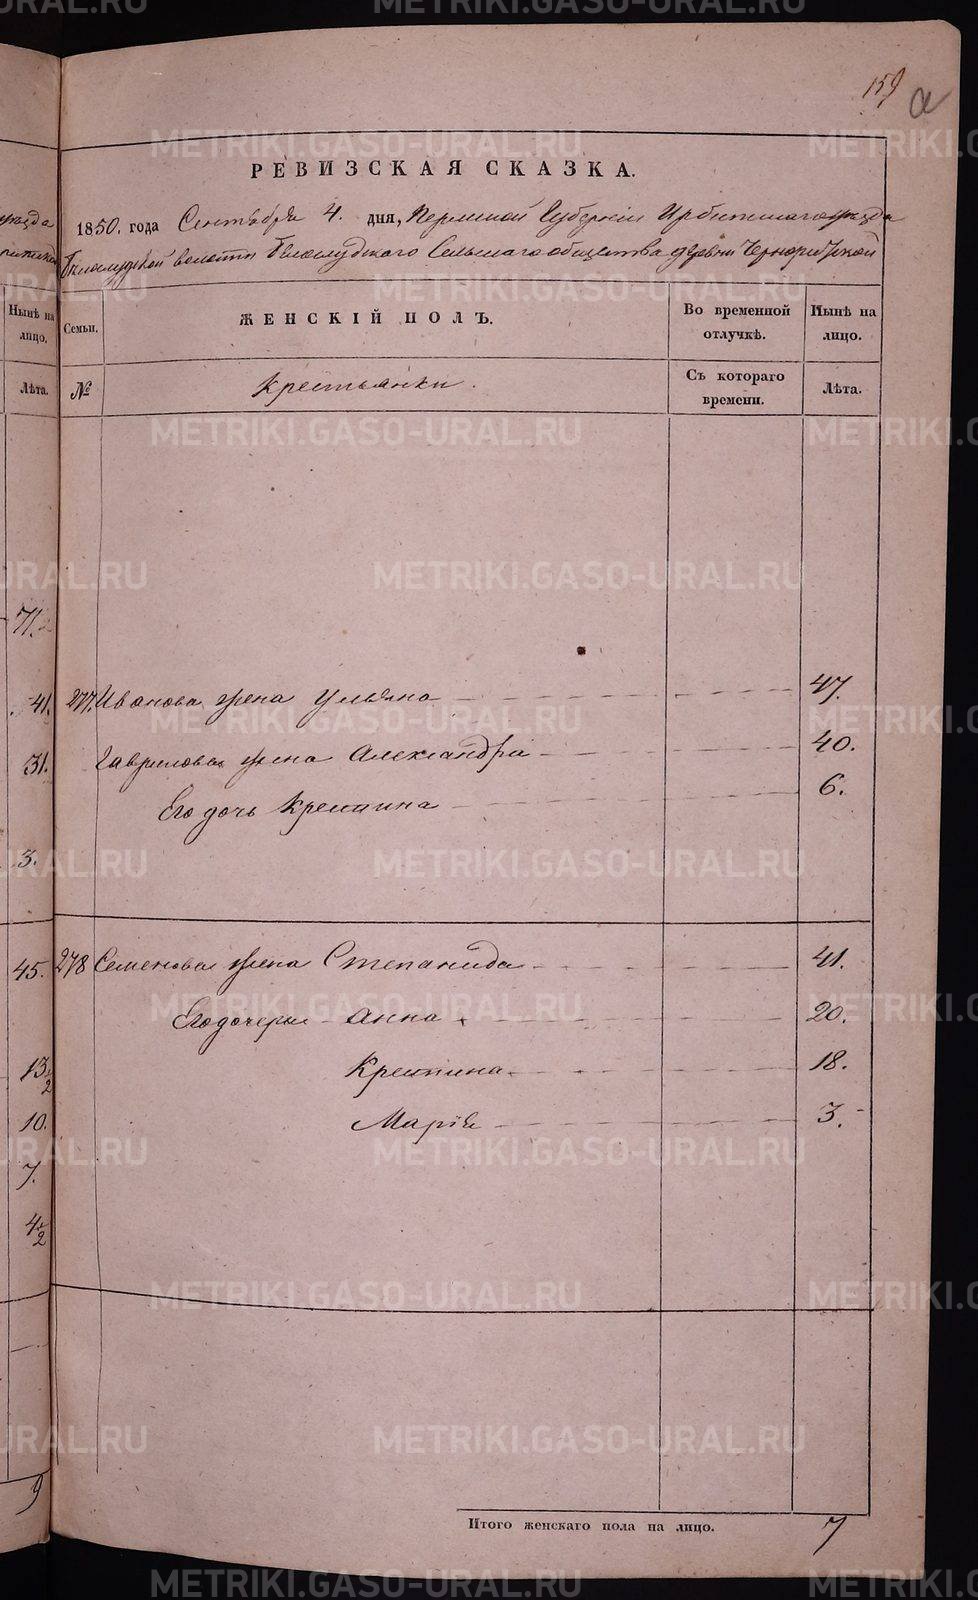 159
а
РЕВИЗСКАЯ СКАЗКА.
1850. года Сентября 4. дня, Пермской Губернии Ирбитскаго уезда
Белослудской волости Белослудского Сельскаго общества деревни
Семьи.
ЖЕНСКІЙ ПОЛЪ.
Во временной отлучкѣ.
Нынѣ на лицо.
№
Крестьянки.
Съ котораго времени.
Лѣта.
277. Иванова жена Ульяна 47.
Гаврилова жена Александра 40.
Его дочь Крестина 6.
278 Семенова жена Степанида 41.
Его дочери Анна 20.
Крестина 18.
Марія 3.
Итого женскаго пола на лицо. 7
Нынѣ на лицо.
Лѣта.
71.
41.
31.
3.
45.
13
10.
7.
9
METRIKI.GASO-URAL.RU